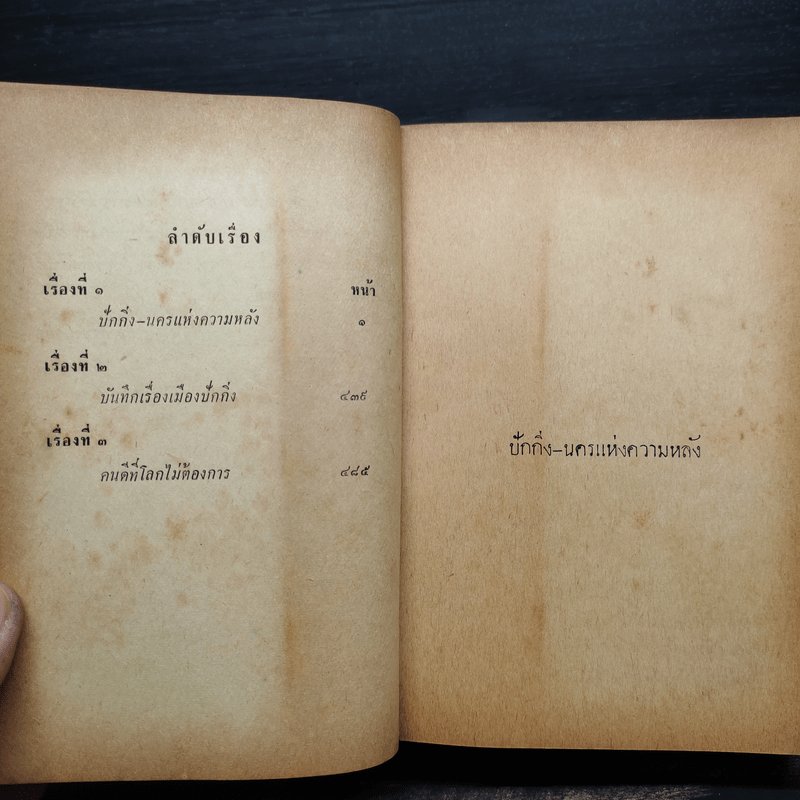 ลำดับเรื่อง
เรื่องที่ ๑ หน้า
ปักกิ่ง-นครแห่งความหลัง ๑
เรื่องที่ ๒
บันทึกเรื่องเมืองปักกิ่ง ๔๓๙
เรื่องที่ ๓
คนดีที่โลกไม่ต้องการ ๔๘๕
ปักกิ่ง-นครแห่งความหลัง